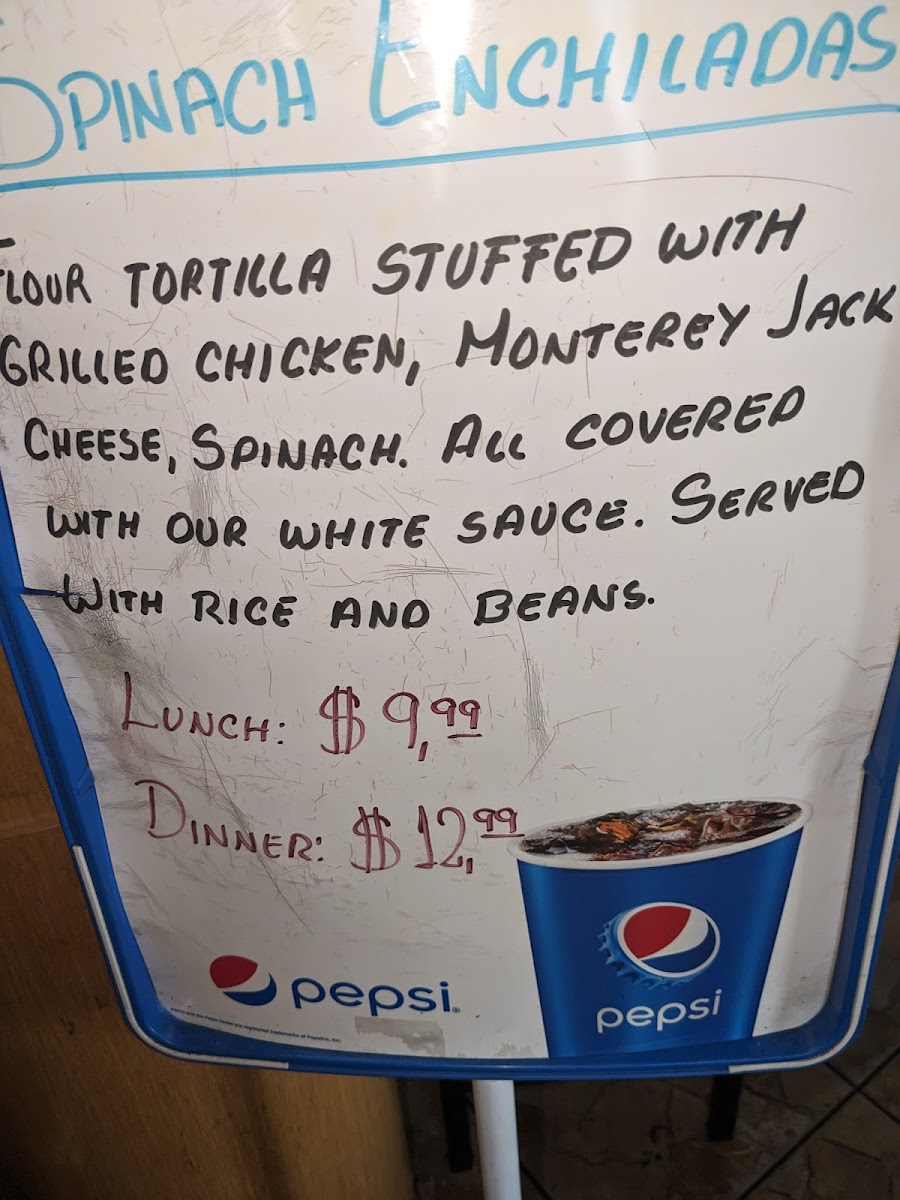 SPINACH ENCHILADAS
FLOUR TORTILLA STUFFED WITH
GRILLED CHICKEN, MONTEREY JACK
CHEESE, SPINACH. ALL COVERED
WITH OUR WHITE SAUCE. SERVED
WITH RICE AND BEANS.
LUNCH: $9,99
DINNER: $12,99
pepsi
pepsi